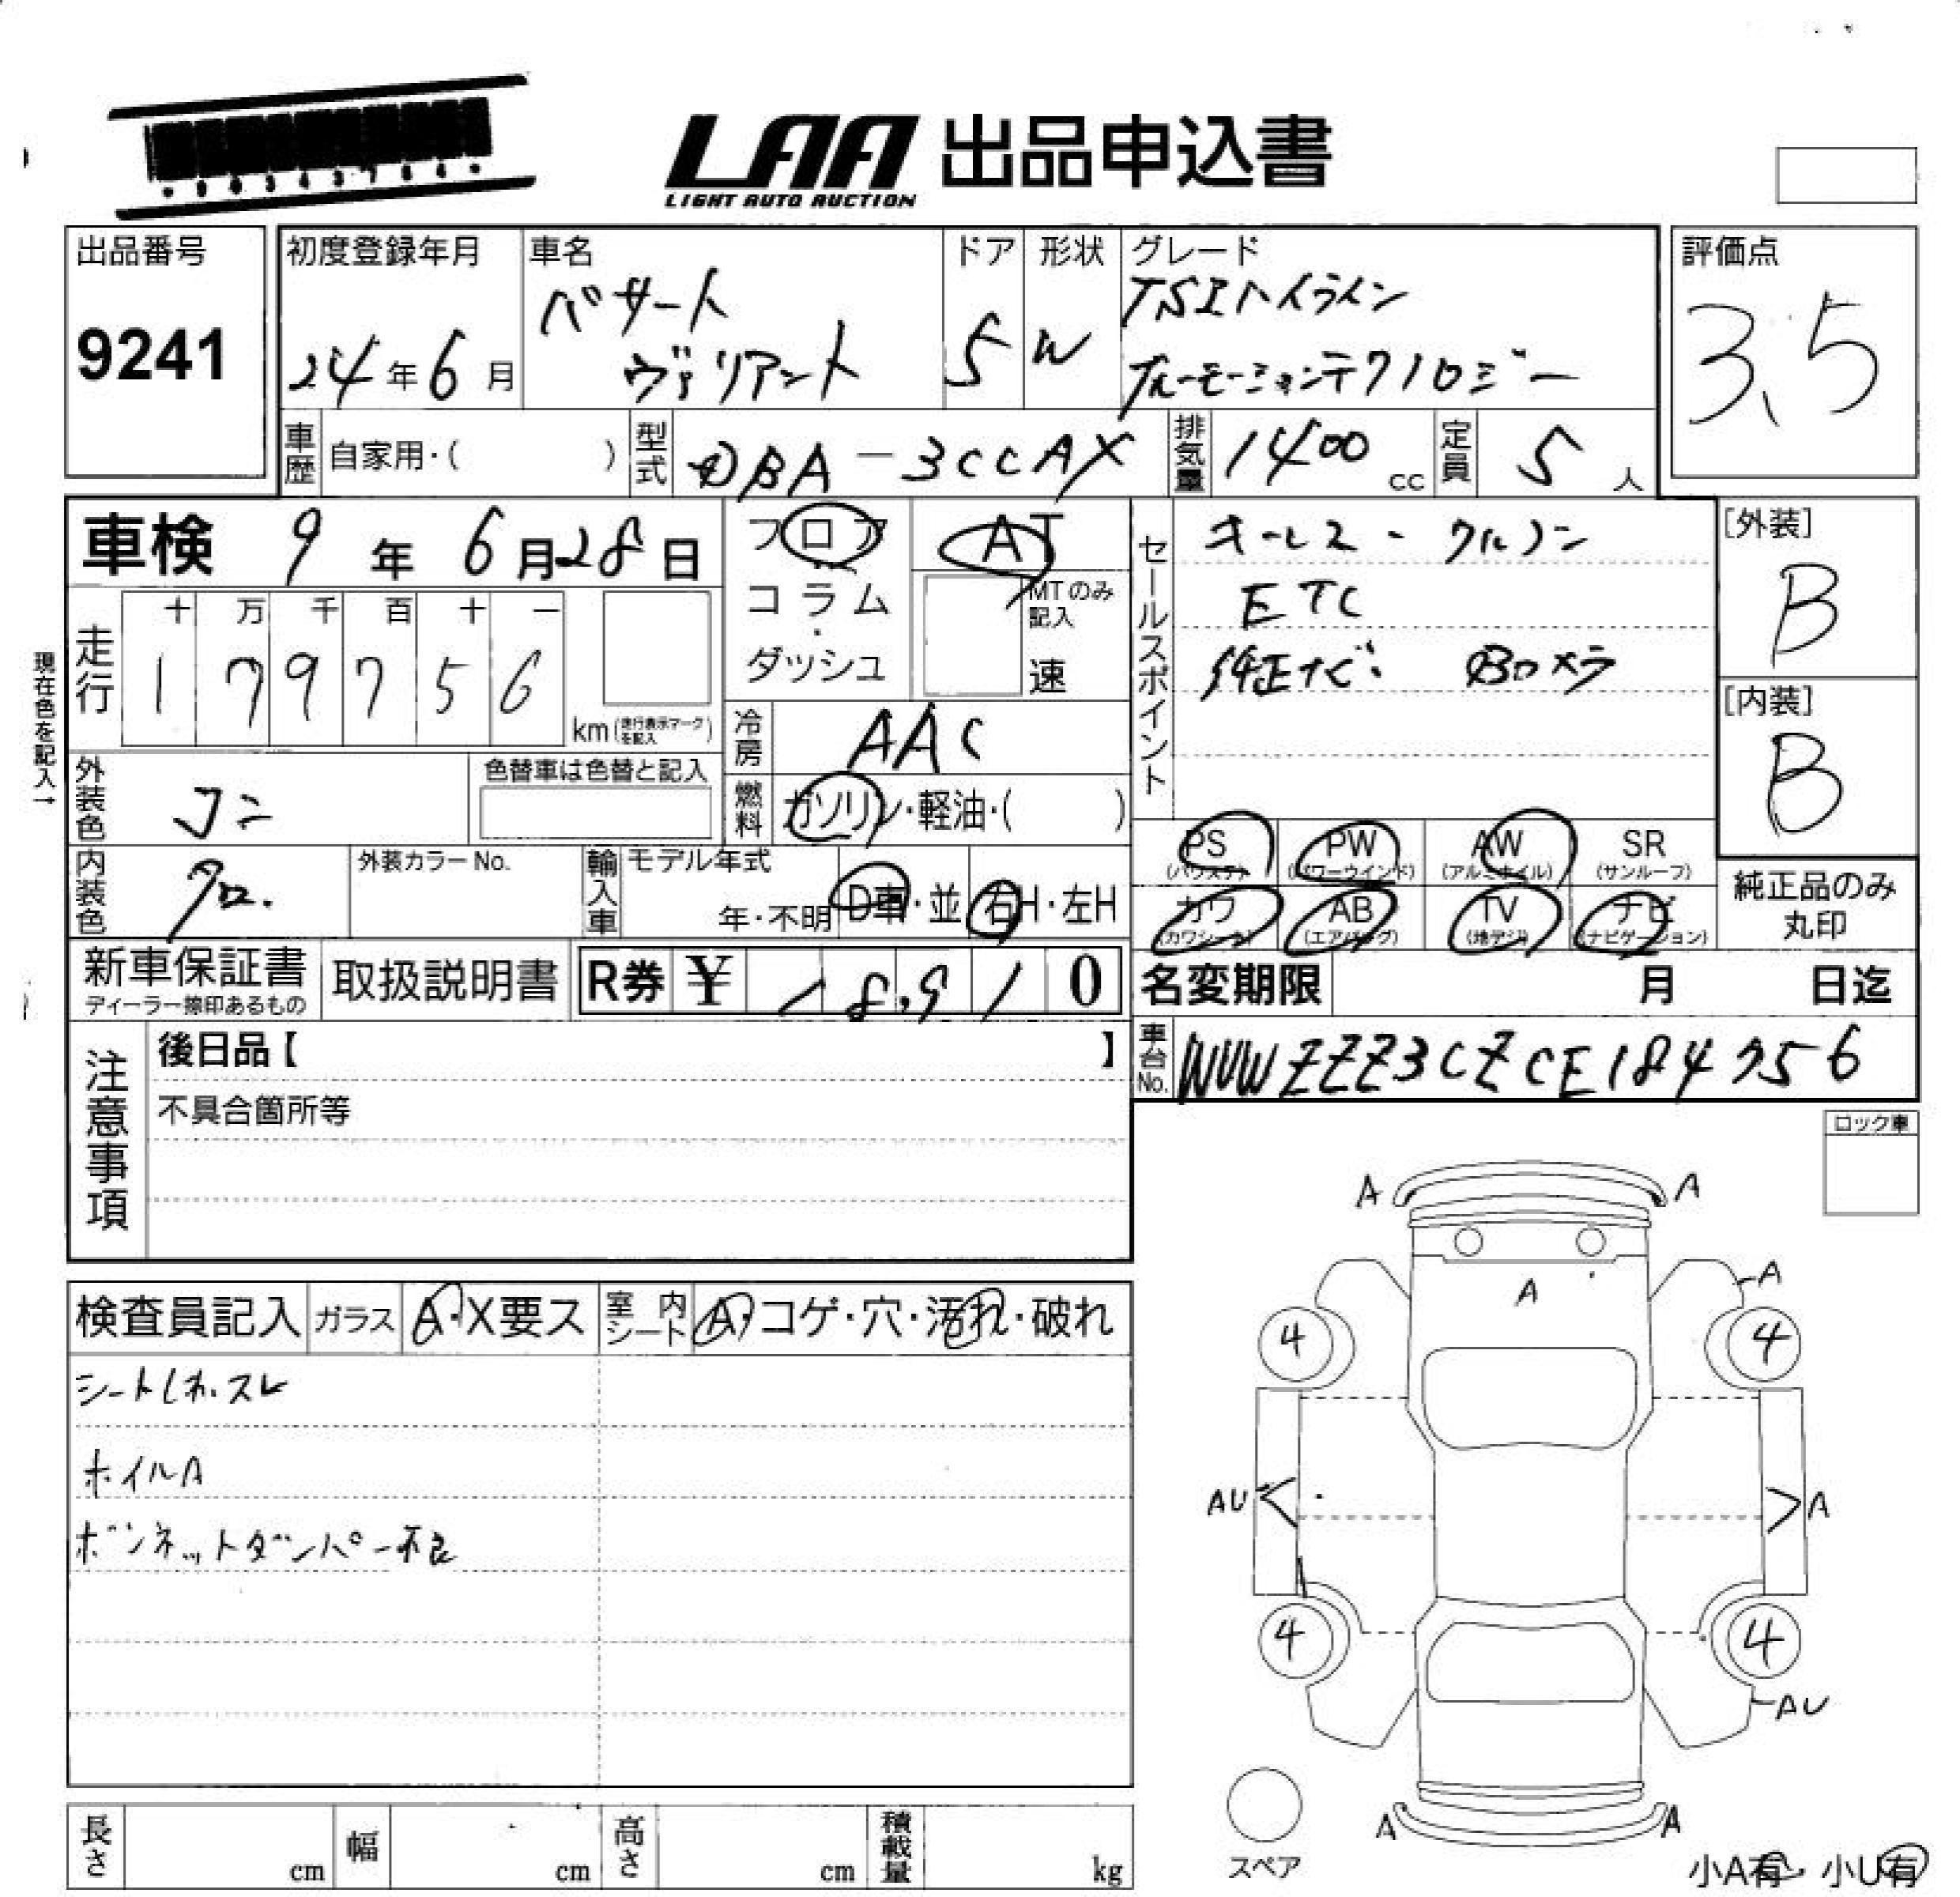 LAA 出品申込書
LIGHT AUTO AUCTION
出品番号
9241
初度登録年月
24年6月
車名
パサート
ヴァリアント
ドア
5
形状
W
グレード
TSIハイライン
ブルーモーションテクノロジー
評価点
3.5
車歴 自家用・( )
型式 DBA-3CCAX
排気量 1400 cc
定員 5 人
車検 9年6月28日
フロア
コラム
・
ダッシュ
AT
MTのみ記入
速
セールスポイント
キーレス・クルコン
ETC
純正ナビ・ Bカメラ
[外装]
B
[内装]
B
現在色を記入→
走行
十 万 千 百 十 一
1 7 9 7 5 6
km(走行表示マークを記入)
冷房 AAC
燃料 ガソリン・軽油・( )
外装色 コン
色替車は色替と記入
内装色 クロ.
外装カラーNo.
輸入車 モデル年式
年・不明 D車・並 右H・左H
PS (パワステ)
PW (パワーウインド)
AW (アルミホイル)
SR (サンルーフ)
カワ (カワシート)
AB (エアバッグ)
TV (地デジ)
ナビ (ナビゲーション)
純正品のみ
丸印
新車保証書
ディーラー捺印あるもの
取扱説明書
R券 ¥ 18,910
名変期限 月 日迄
車台No. WVWZZZ3CZCE184756
注意事項
後日品【 】
不具合箇所等
ロック車
検査員記入 ガラス A・X要ス 室内シート A・コゲ・穴・汚れ・破れ
シートしわ、スレ
ホイルA
ボンネットダンパー不良
A A
A
A
4 4
AU A
4 4
AU
A A
スペア
小A有 小U有
長さ cm
幅 cm
高さ cm
積載量 kg